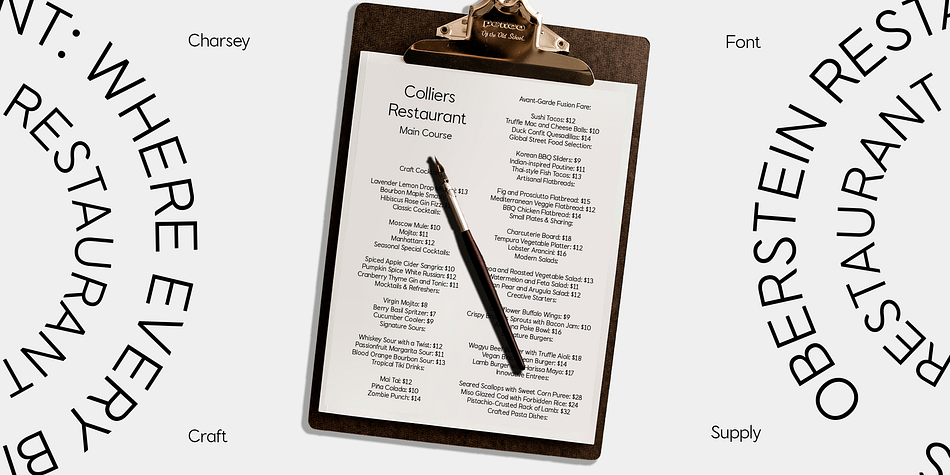 NT: WHERE EVERY BI
RESTAURANT
Charsey
Craft
Up the Old School.
Colliers
Restaurant
Main Course
Craft
Lavender Lemon Drop $13
Bourbon Maple
Hibiscus Rose Gin
Classic Cocktails:
Moscow Mule: $10
Mojito: $11
Manhattan: $12
Seasonal Special Cocktails:
Spiced Apple Cider Sangria: $10
Pumpkin Spice White Russian: $12
Cranberry Thyme Gin and Tonic: $11
Mocktails & Refreshers:
Virgin Mojito: $8
Berry Basil Spritzer: $7
Cucumber Cooler: $9
Signature Sours:
Whiskey Sour with a Twist: $12
Passionfruit Margarita Sour: $11
Blood Orange Bourbon Sour: $13
Tropical Tiki Drinks:
Mai Tai: $12
Piña Colada: $10
Zombie Punch: $14
Avant-Garde Fusion Fare:
Sushi Tacos: $12
Truffle Mac and Cheese Balls: $10
Duck Confit Quesadillas: $14
Global Street Food Selection:
Korean BBQ Sliders: $9
Indian-inspired Poutine: $11
Thai-style Fish Tacos: $13
Artisanal Flatbreads:
Fig and Prosciutto Flatbread: $15
Mediterranean Veggie Flatbread: $12
BBQ Chicken Flatbread: $14
Small Plates & Sharing:
Charcuterie Board: $18
Tempura Vegetable Platter: $12
Lobster Arancini: $16
Modern Salads:
and Roasted Vegetable Salad: $13
Watermelon and Feta Salad: $11
Pear and Arugula Salad: $12
Creative Starters:
Buffalo Wings: $9
Crispy Sprouts with Bacon Jam: $10
Poke Bowl: $16
Burgers:
Wagyu with Truffle Aioli: $18
Vegan Burger: $14
Lamb Burger Mayo: $17
Entrees:
Seared Scallops with Sweet Corn Puree: $28
Miso Glazed Cod with Forbidden Rice: $24
Pistachio-Crusted Rack of Lamb: $32
Crafted Pasta Dishes:
Font
Supply
OBERSTEIN RESTA
RESTAURANT
RES